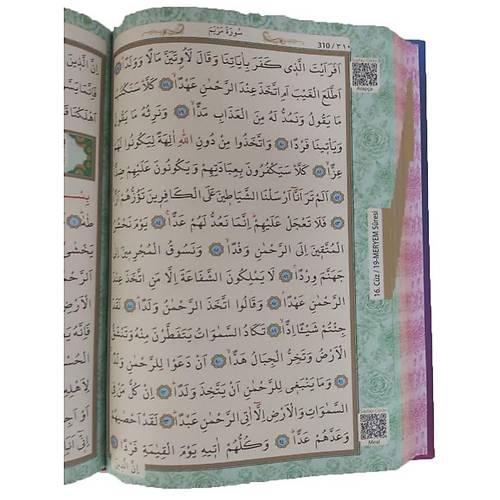 310 / ٣١٠
سُورَةُ مَرْيَمَ
اَفَرَاَيْتَ الَّذ۪ي كَفَرَ بِاٰيَاتِنَا وَقَالَ لَاُو۫تَيَنَّ مَالًا وَوَلَدًاۜ ﴿٧٧﴾
اَطَّلَعَ الْغَيْبَ اَمِ اتَّخَذَ عِنْدَ الرَّحْمٰنِ عَهْدًاۙ ﴿٧٨﴾ كَلَّاۜ سَنَكْتُبُ
مَا يَقُولُ وَنَمُدُّ لَهُ مِنَ الْعَذَابِ مَدًّاۙ ﴿٧٩﴾ وَنَرِثُهُ مَا يَقُولُ
وَيَأْت۪ينَا فَرْدًا ﴿٨٠﴾ وَاتَّخَذُوا مِنْ دُونِ اللّٰهِ اٰلِهَةً لِيَكُونُوا لَهُمْ
عِزًّاۙ ﴿٨١﴾ كَلَّاۜ سَيَكْفُرُونَ بِعِبَادَتِهِمْ وَيَكُونُونَ عَلَيْهِمْ ضِدًّا
﴿٨٢﴾ اَلَمْ تَرَ اَنَّٓا اَرْسَلْنَا الشَّيَاط۪ينَ عَلَى الْكَافِر۪ينَ تَؤُزُّهُمْ اَزًّاۙ
﴿٨٣﴾ فَلَا تَعْجَلْ عَلَيْهِمْۜ اِنَّمَا نَعُدُّ لَهُمْ عَدًّاۚ ﴿٨٤﴾ يَوْمَ نَحْشُرُ
الْمُتَّق۪ينَ اِلَى الرَّحْمٰنِ وَفْدًاۙ ﴿٨٥﴾ وَنَسُوقُ الْمُجْرِم۪ينَ اِلٰى
جَهَنَّمَ وِرْدًاۢ ﴿٨٦﴾ لَا يَمْلِكُونَ الشَّفَاعَةَ اِلَّا مَنِ اتَّخَذَ عِنْدَ
الرَّحْمٰنِ عَهْدًاۢ ﴿٨٧﴾ وَقَالُوا اتَّخَذَ الرَّحْمٰنُ وَلَدًاۜ ﴿٨٨﴾ لَقَدْ
جِئْتُمْ شَيْـًٔا اِدًّاۙ ﴿٨٩﴾ تَكَادُ السَّمٰوَاتُ يَتَفَطَّرْنَ مِنْهُ وَتَنْشَقُّ
الْاَرْضُ وَتَخِرُّ الْجِبَالُ هَدًّاۙ ﴿٩٠﴾ اَنْ دَعَوْا لِلرَّحْمٰنِ وَلَدًاۚ
﴿٩١﴾ وَمَا يَنْبَغ۪ي لِلرَّحْمٰنِ اَنْ يَتَّخِذَ وَلَدًاۜ ﴿٩٢﴾ اِنْ كُلُّ مَنْ فِي
السَّمٰوَاتِ وَالْاَرْضِ اِلَّٓا اٰتِي الرَّحْمٰنِ عَبْدًاۜ ﴿٩٣﴾ لَقَدْ اَحْصٰيهُمْ
وَعَدَّهُمْ عَدًّاۜ ﴿٩٤﴾ وَكُلُّهُمْ اٰت۪يهِ يَوْمَ الْقِيٰمَةِ فَرْدًا ﴿٩٥﴾
اِنَّ الَّذ۪ينَ
Arapça
16. Cüz / 19-MERYEM Sûresi
Meal
اِنَّ الَّذ۪ينَ